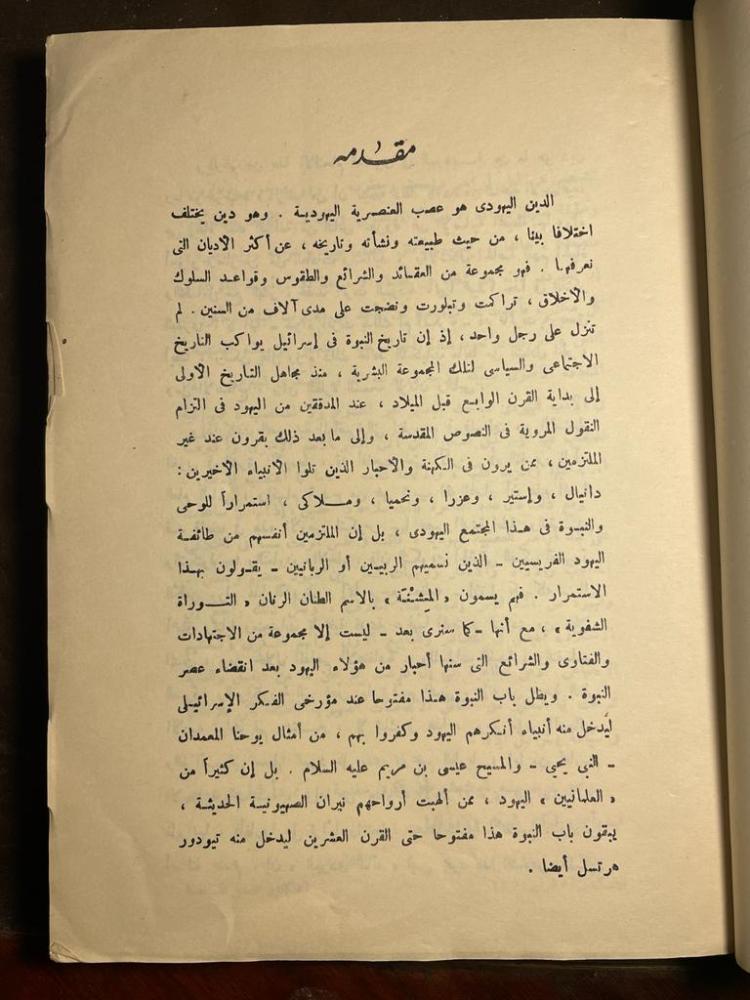 مقدمه
الدين اليهودى هو عصب العنصرية اليهودية . وهو دين يختلف
اختلافا بينا ، من حيث طبيعته ونشأته وتاريخه ، عن أكثر الأديان التى
نعرفها . فهو مجموعة من العقائد والشرائع والطقوس وقواعد السلوك
والأخلاق ، تراكمت وتبلورت ونضجت على مدى آلاف من السنين . لم
تنزل على رجل واحد ، إذ إن تاريخ النبوة فى إسرائيل يواكب التاريخ
الاجتماعى والسياسى لتلك المجموعة البشرية ، منذ مجاهل التاريخ الأولى
إلى بداية القرن الرابع قبل الميلاد ، عند المدققين من اليهود فى التزام
النقول المروية فى النصوص المقدسة ، وإلى ما بعد ذلك بقرون عند غير
الملتزمين ، ممن يرون فى الكهنة والأحبار الذين تلوا الأنبياء الأخيرين :
دانيال ، وإستير ، وعزرا ، ونحميا ، وملاكى ، استمراراً للوحى
والنبوة فى هذا المجتمع اليهودى ، بل إن الملتزمين أنفسهم من طائفة
اليهود الفريسيين ــ الذين نسميهم الربيين أو الربانيين ــ يقولون بهذا
الاستمرار . فهم يسمون « المِشْنَة » بالاسم الطنان الرنان « التوراة
الشفوية » ، مع أنها ــ كما سنرى بعد ــ ليست إلا مجموعة من الاجتهادات
والفتاوى والشرائع التى سنها أحبار من هؤلاء اليهود بعد انقضاء عصر
النبوة . ويظل باب النبوة هذا مفتوحا عند مؤرخى الفكر الإسرائيلى
ليَدخل منه أنبياء أنكرهم اليهود وكفروا بهم ، من أمثال يوحنا المعمدان
ــ النبى يحيى ــ والمسيح عيسى بن مريم عليه السلام . بل إن كثيراً من
« العلمانيين » اليهود ، ممن ألهبت أرواحهم نيران الصهيونية الحديثة ،
يبقون باب النبوة هذا مفتوحا حتى القرن العشرين ليدخل منه تيودور
هرتسل أيضا .